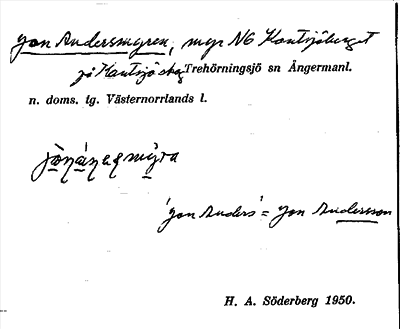 Jon Andersmyren, myr NG Kantsjöberget
på Kantsjö skog Trehörningsjö sn Ångermanl.
n. doms. tg. Västernorrlands l.
'Jon Anders' = Jon Andersson
H. A. Söderberg 1950.